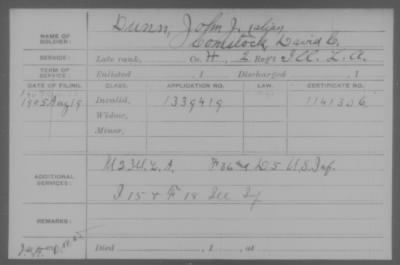 NAME OF SOLDIER: Dunn, John J. alias
Comstock, David C.
SERVICE: Late rank, Co. H, 2 Reg't Ill. L. A.
TERM OF SERVICE: Enlisted , 1 Discharged , 1
DATE OF FILING. CLASS. APPLICATION NO. LAW. CERTIFICATE NO.
1905 Aug 19 Invalid, 1339419 1141306
Widow,
Minor,
ADDITIONAL SERVICES: M 2 Ill. L. A. F 36 D 5 U.S. Inf.
I 15 & F 18
REMARKS:
Died , 1 , at